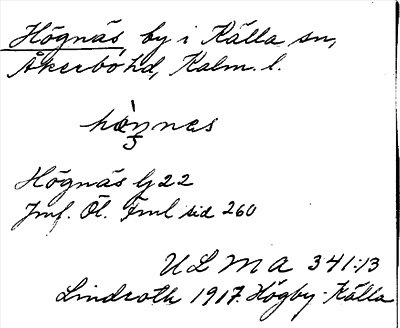 Högnäs, by i Källa sn,
Åkerbo hd, Kalm. l.
Högnäs G 22
Jmf. Öl. Fml sid 260
ULMA 341:13
Lindroth 1917. Högby-Källa